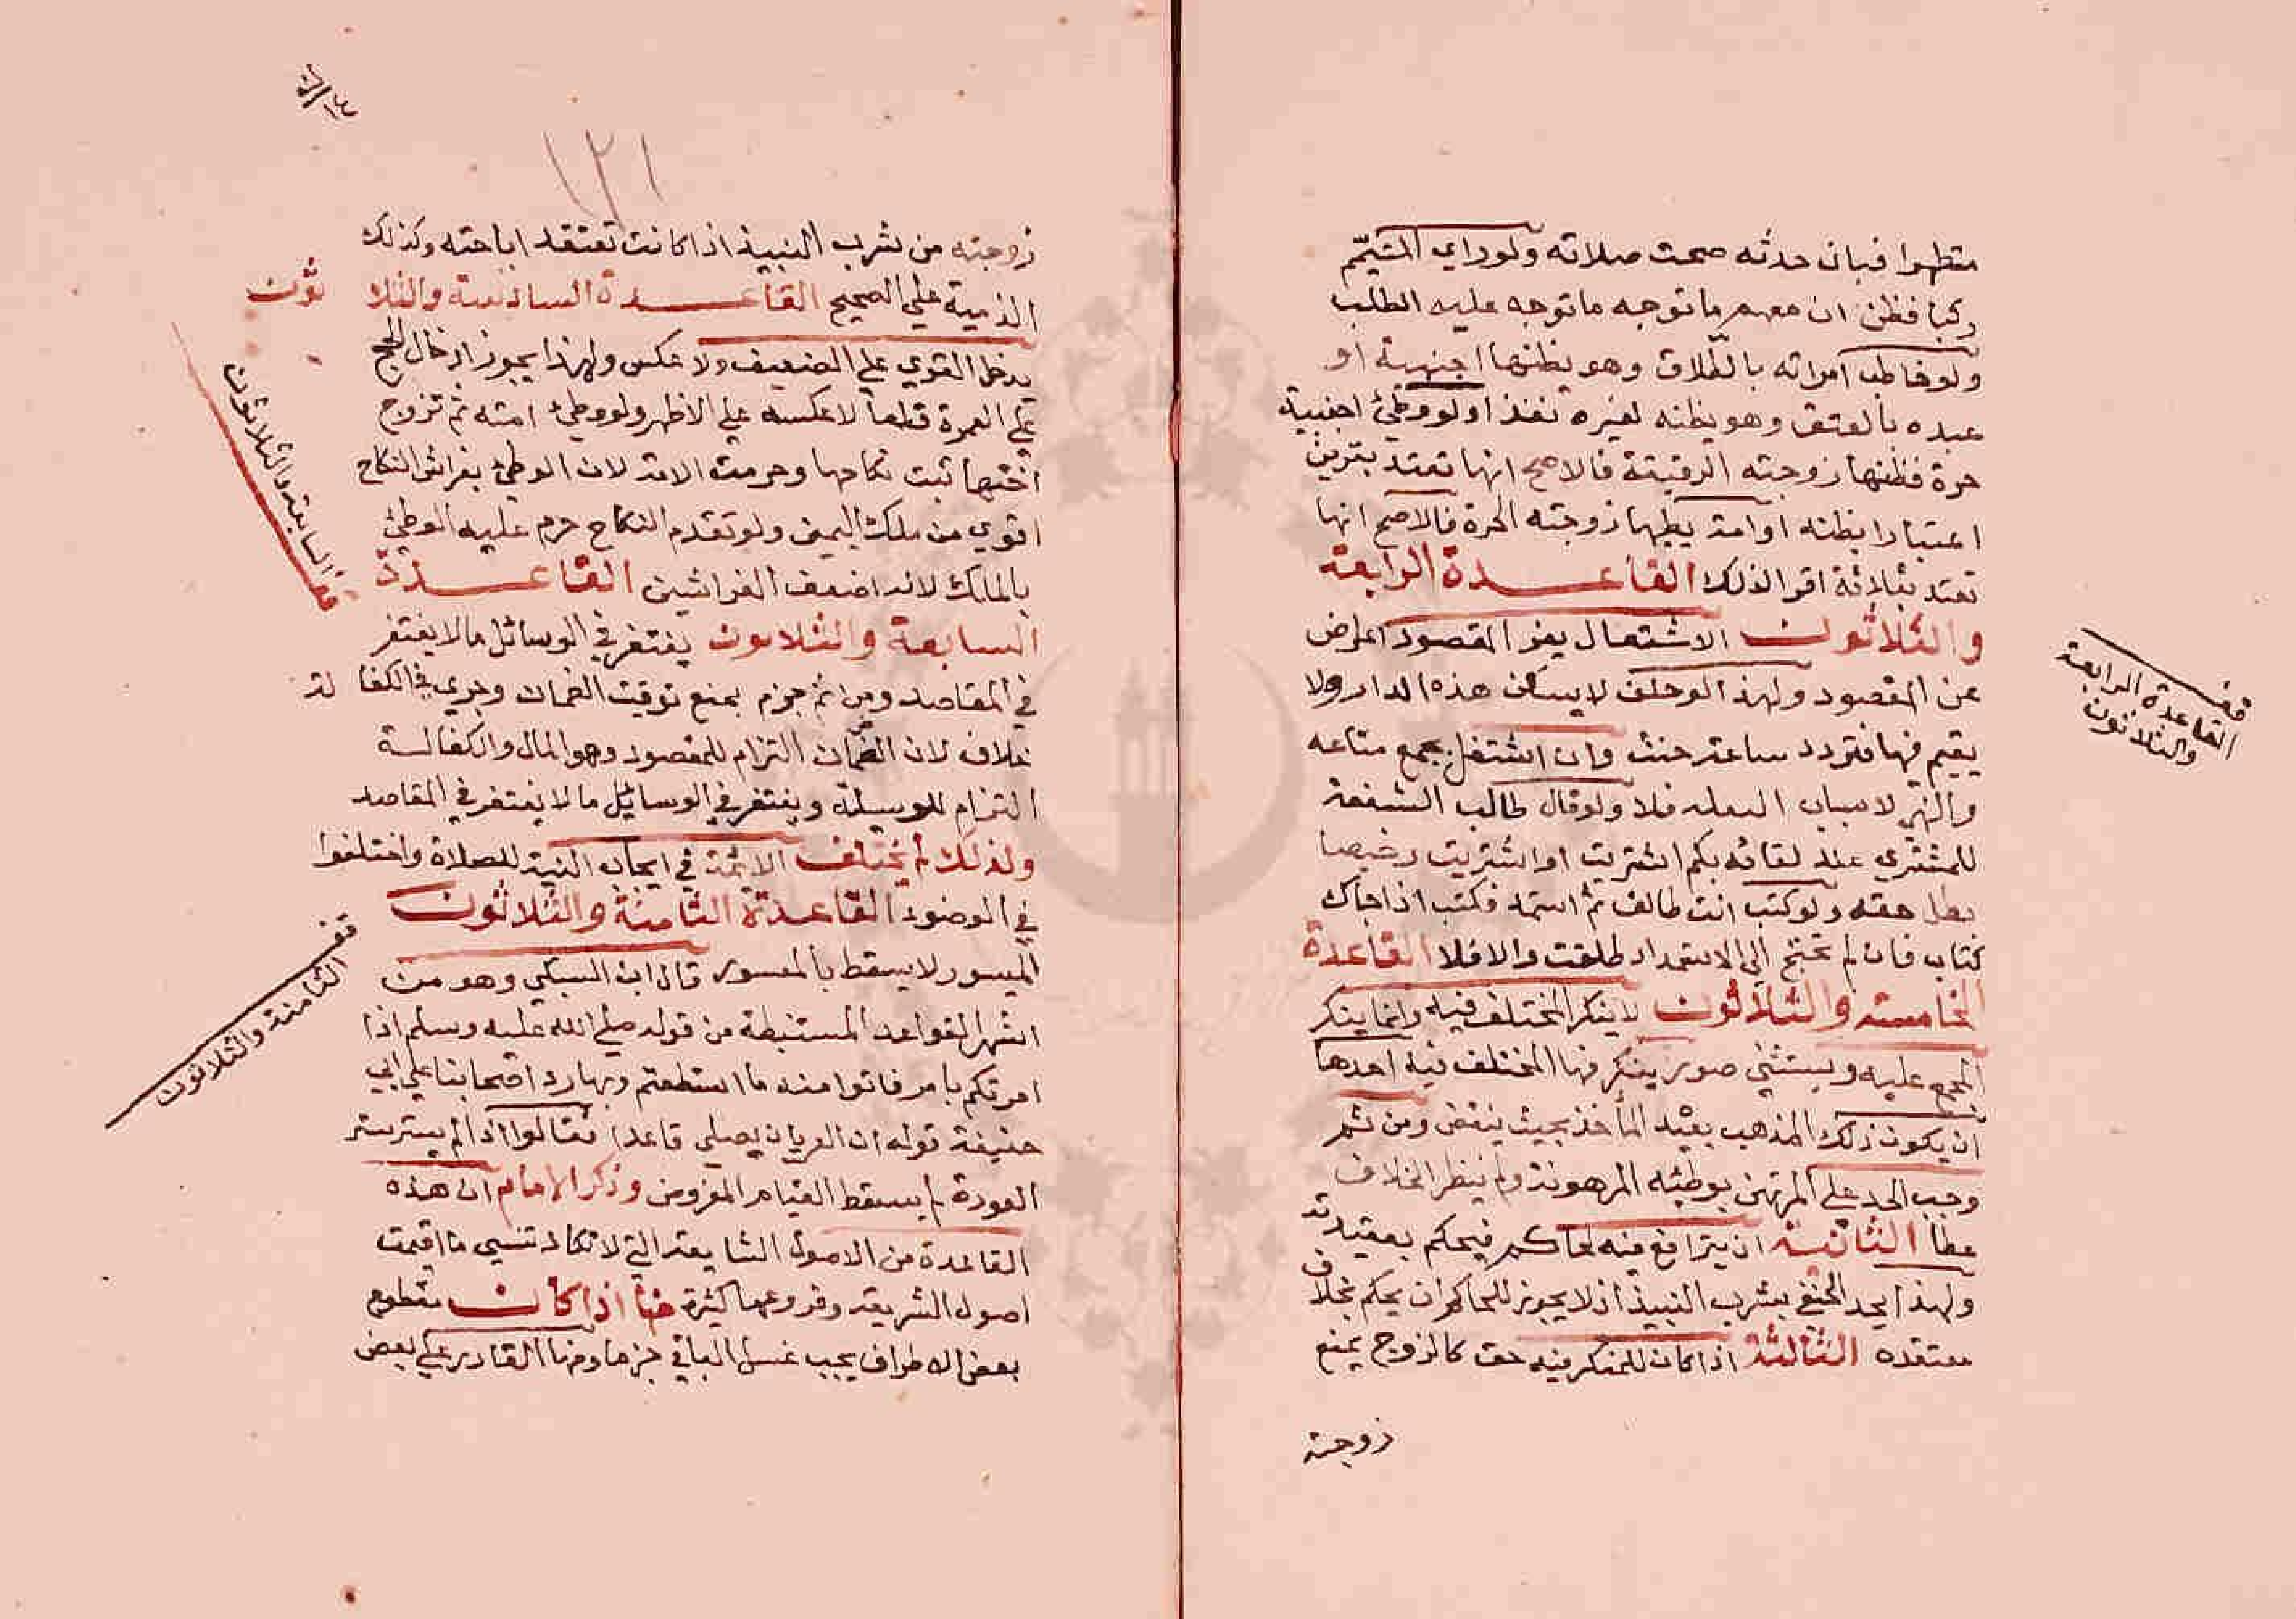 متطهرا فبان حدثه صحت صلاته ولو راي المتيمم
ركبا فظن ان معهم ما توجه ما توجه عليه الطلب
ولو خاطب امراته بالطلاق وهو يظنها اجنبية او
عبده بالعتق وهو يظنه لغيره نفذ او لو وطئ اجنبية
حرة فظنها زوجته الرقيقة فالاصح انها تعتد بقرين
اعتبارا بظنه او امة يظنها زوجته الحرة فالاصح انها
تعتد بثلاثة اقرا لذلك القاعدة الرابعة
والثلاثون الاشتغال بغير المقصود اعراض
عن المقصود ولهذا لو حلف لا يسكن هذه الدار ولا
يقيم فيها فتردد ساعة حنث وان اشتغل بجمع متاعه
والتهيّ لاسباب النقله فلا ولو قال طالب الشفعة
للمشتري عند لقائه بكم اشتريت او اشتريت رخيصا
بطل حقه ولو كتب انت طالق ثم استمد فكتب اذا جاك
كتابي فان لم تحتج الي الاستمداد طلقت والا فلا القاعدة
الخامسة والثلاثون لا ينكر المختلف فيه وانما ينكر
المجمع عليه ويستثني صور ينكر فيها المختلف فيه احدها
ان يكون ذلك المذهب بعيد المأخذ بحيث ينقض ومن ثم
وجب الحد علي المرتهن بوطئه المرهونة ولم ينظر لخلاف
عطا الثانية ان يترافع فيه لحاكم فيحكم بعقيدته
ولهذا يحد الحنفي بشرب النبيذ اذ لا يجوز للحاكم ان يحكم بخلاف
معتقده الثالثة اذا كان للمنكر فيه حق كالزوج يمنع
زوجته
قف القاعدة الرابعة
والثلاثون
١٢١
زوجته من شرب النبيذ اذا كانت تعتقد اباحته وكذلك
الذمية علي الصحيح القاعدة السادسة والثلاثون
يدخل القوي علي الضعيف ولا عكس ولهذا يجوز ادخال الحج
علي العمرة قطعا لا عكسه علي الاظهر ولو وطئ امته ثم تزوج
اختها ثبت نكاحها وحرمت الامة لان الوطئ بفراش النكاح
اقوي من ملك اليمين ولو تقدم النكاح حرم عليه الوطئ
بالملك لانه اضعف الفراشين القاعدة
السابعة والثلاثون يغتفر في الوسائل ما لا يغتفر
في المقاصد ومن ثم جزم بمنع توقيت الضمان وجري في الكفالة
خلاف لان الضمان التزام للمقصود وهو المال والكفالة
التزام للوسيلة ويغتفر في الوسايل ما لا يغتفر في المقاصد
ولذلك لم تختلف الائمة في ايجاب النية للصلاة واختلفوا
في الوضوء القاعدة الثامنة والثلاثون
الميسور لا يسقط بالمعسور قال ابن السبكي وهو من
اشهر القواعد المستنبطة من قوله صلي الله عليه وسلم اذا
امرتكم بامر فاتوا منه ما استطعتم وبها رد اصحابنا علي ابي
حنيفة قوله ان العريان يصلي قاعدا فقالوا اذا لم يتيسر ستر
العورة لم يسقط القيام المفروض وذكر الامام ان هذه
القاعدة من الاصول الشايعة التي لا تكاد تنسي ما اقيمت
اصول الشريعة وفروعها كثيرة منها اذا كان مقطوع
بعض الاطراف يجب غسل الباقي جزما ومنها القادر علي بعض
قف السابعة والثلاثون
قف
الثامنة والثلاثون